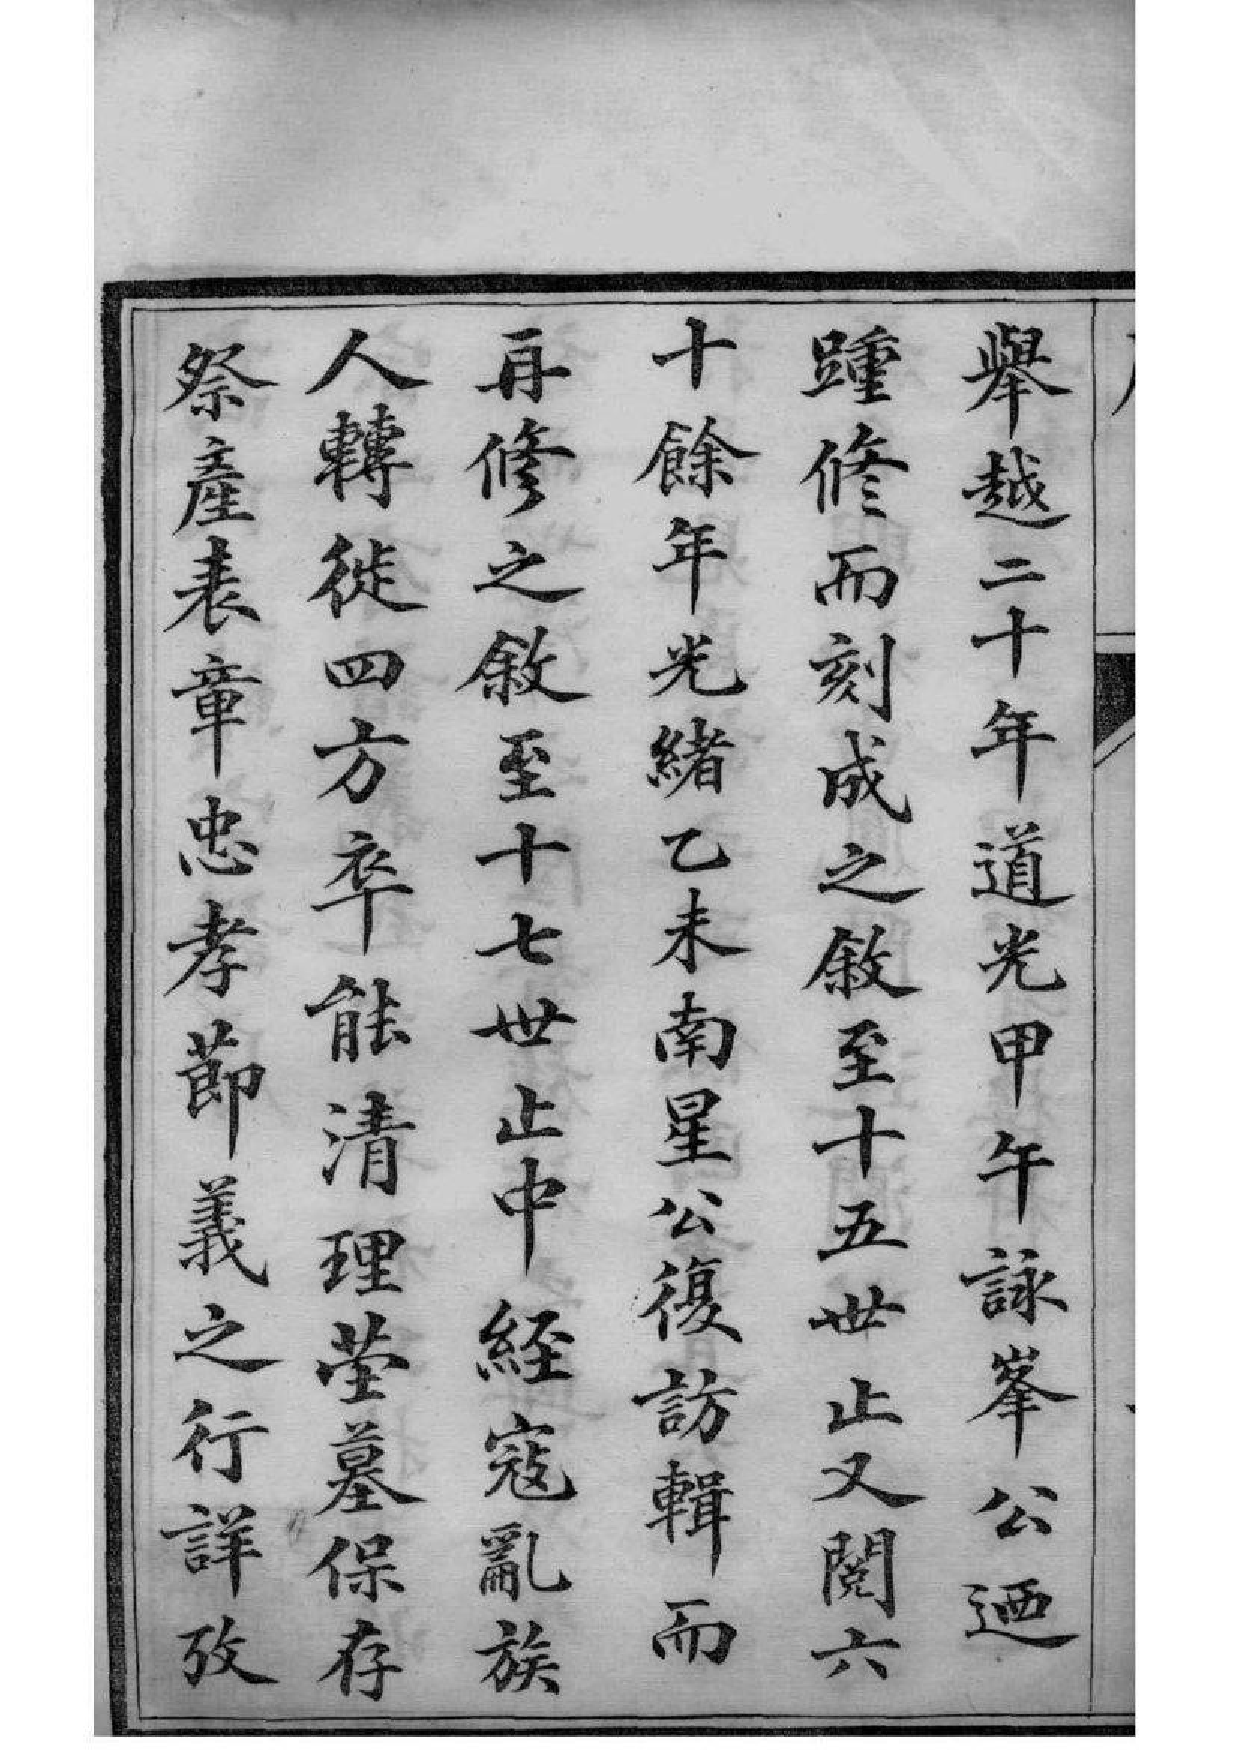 舉越二十年道光甲午詠峯公迺
踵修而刻成之敘至十五世止又閱六
十餘年光緒乙未南星公復訪輯而
再修之敘至十七世止中經寇亂族
人轉徙四方卒能清理塋墓保存
祭產表章忠孝節義之行詳攷